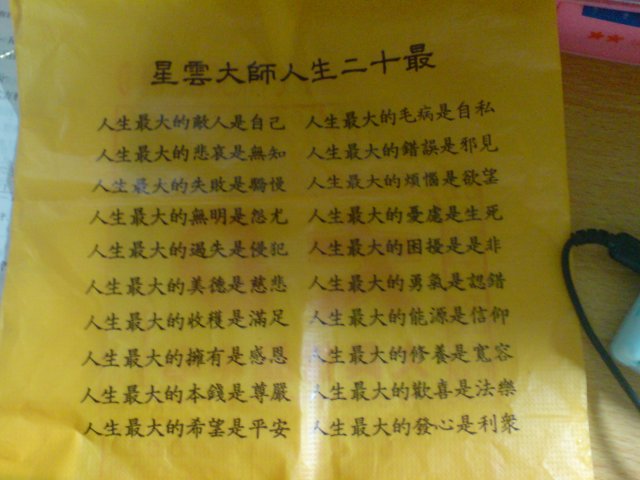 星雲大師人生二十最
人生最大的敵人是自己 人生最大的毛病是自私
人生最大的悲哀是無知 人生最大的錯誤是邪見
人生最大的失敗是驕慢 人生最大的煩惱是欲望
人生最大的無明是怨尤 人生最大的憂慮是生死
人生最大的過失是侵犯 人生最大的困擾是是非
人生最大的美德是慈悲 人生最大的勇氣是認錯
人生最大的收穫是滿足 人生最大的能源是信仰
人生最大的擁有是感恩 人生最大的修養是寬容
人生最大的本錢是尊嚴 人生最大的歡喜是法樂
人生最大的希望是平安 人生最大的發心是利眾